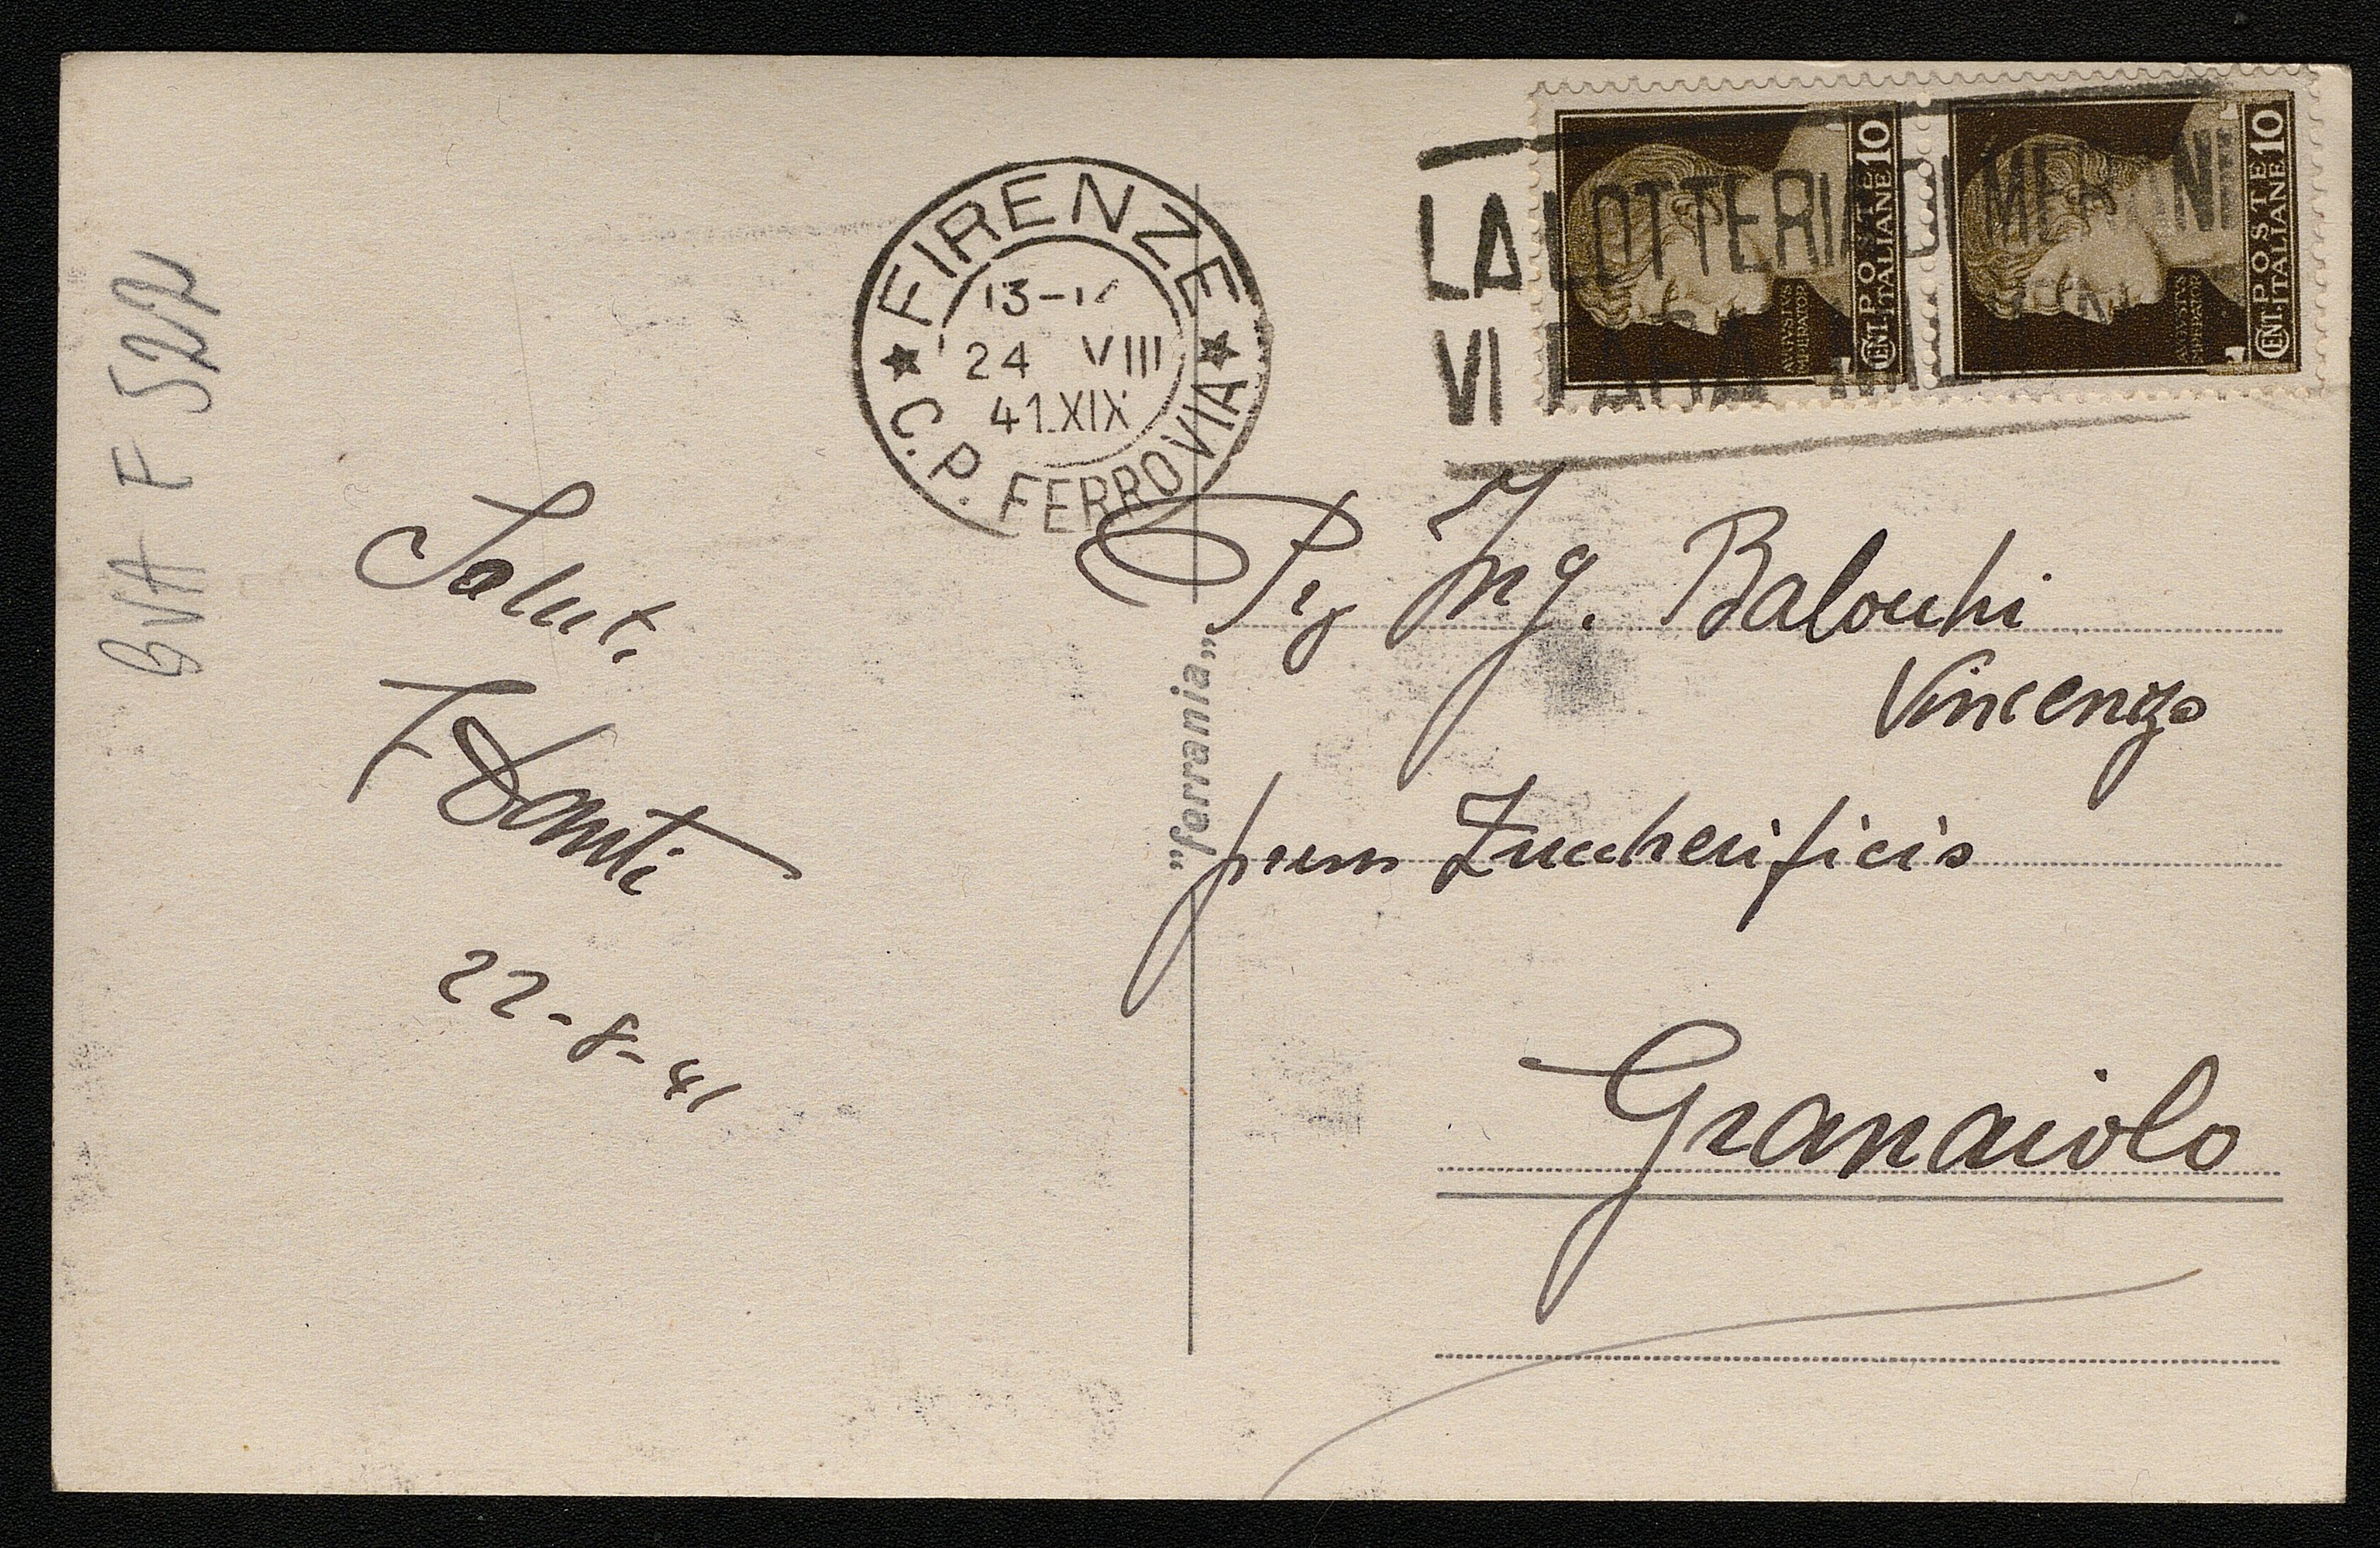 BVA F 522
FIRENZE
13-1
24 VIII
41.XIX
C.P. FERROVIA
LA LOTTERIA DI MERANO
VI
POSTE ITALIANE CENT. 10
AVGVSTVS IMPERATOR
POSTE ITALIANE CENT. 10
AVGVSTVS IMPERATOR
Saluti
22-8-41
"ferrania"
Ing. Balouhi
Vincenzo
Zuccherificio
Granaiolo